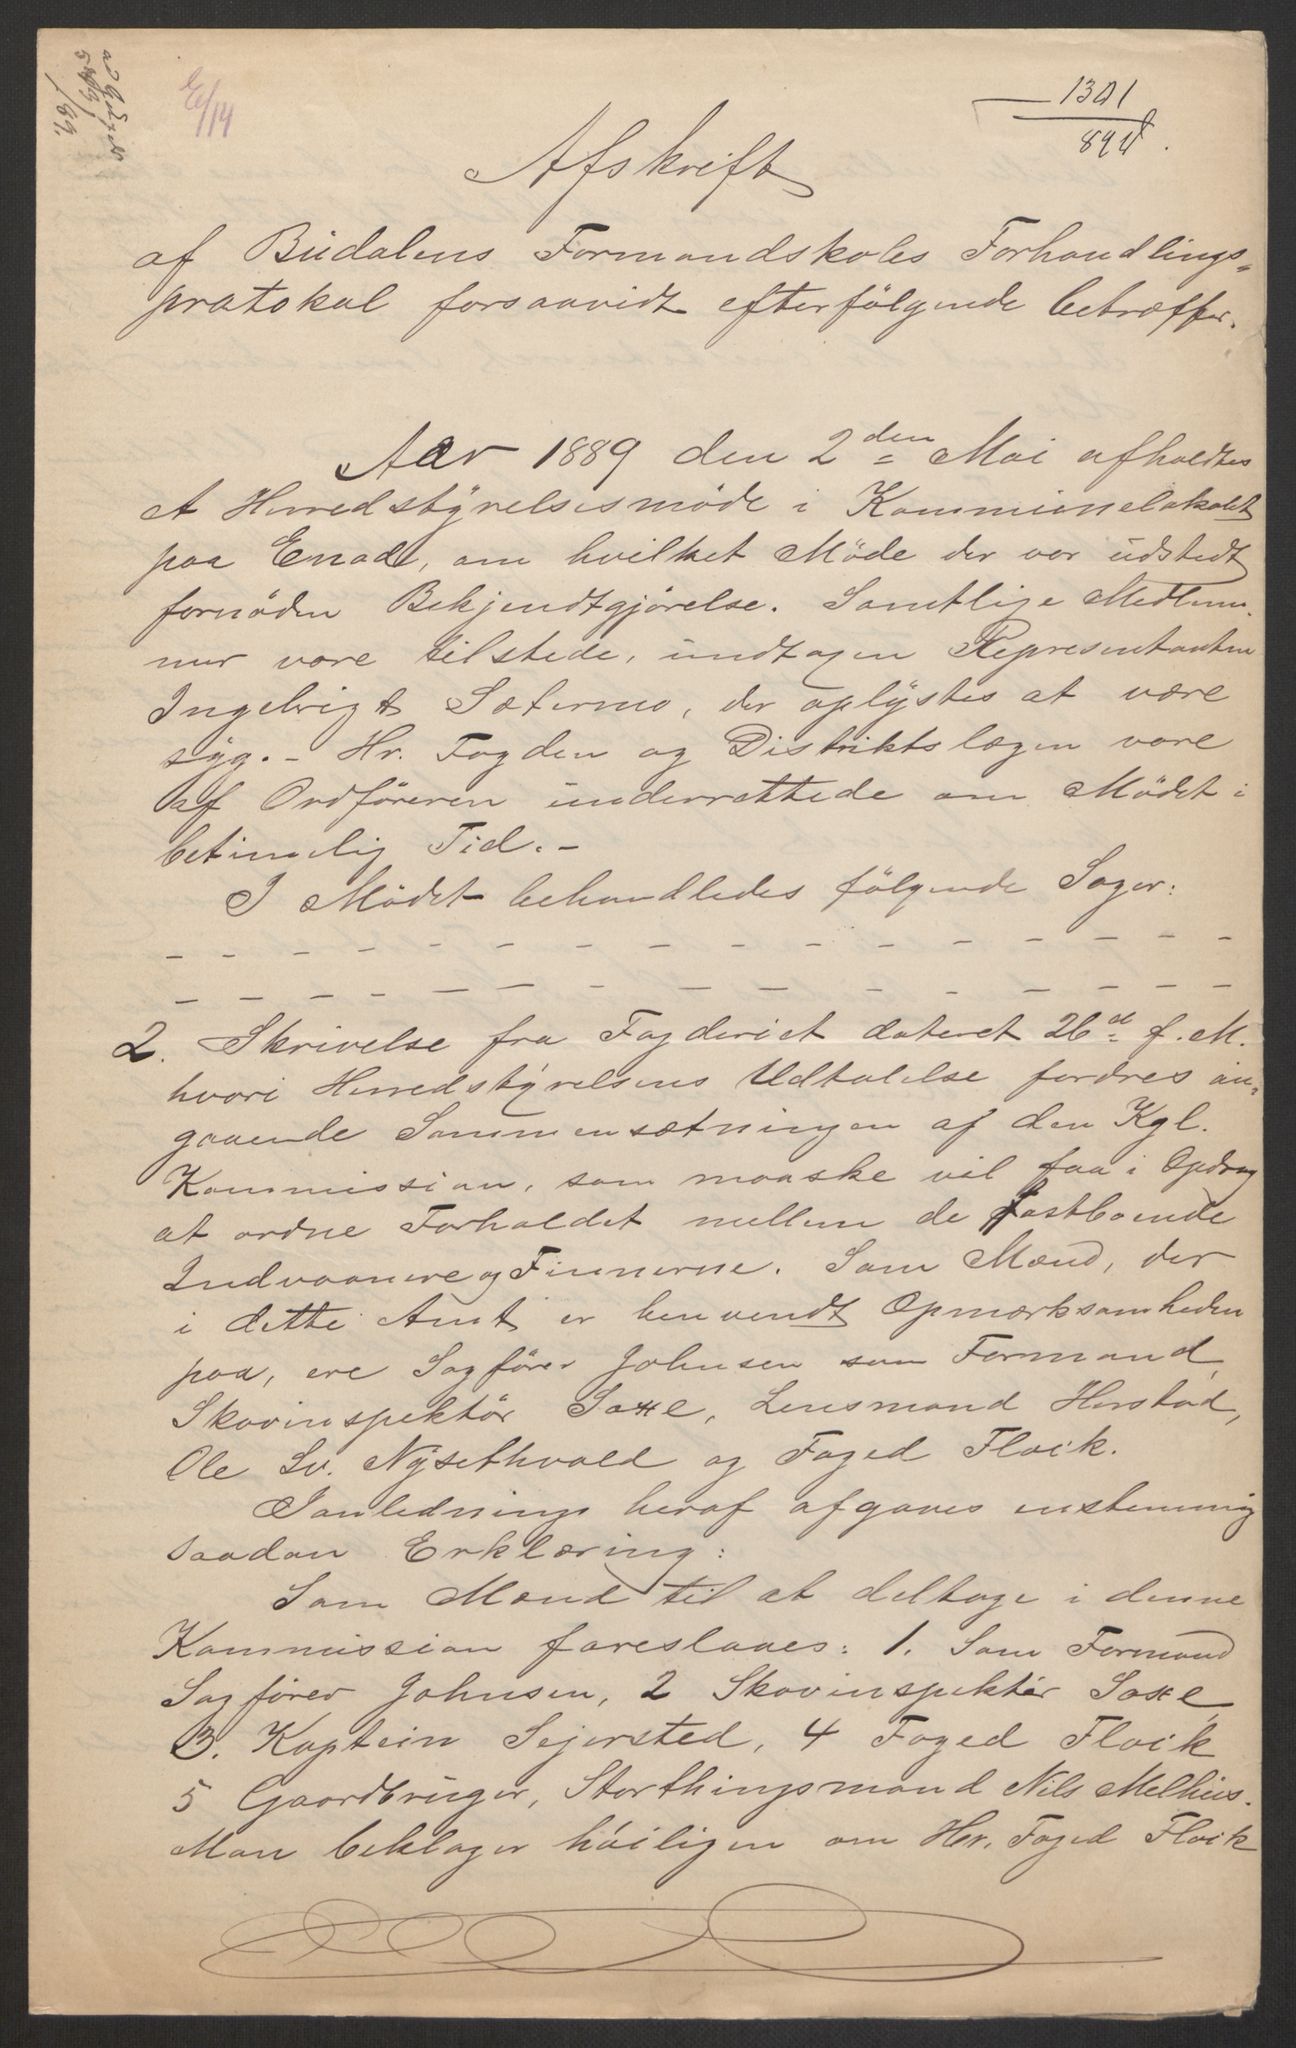 1301
894
E/14
Afskrift
af Budalens Formandskabs Forhandlings-
protokol forsaavidt efterfölgende betræffer.
Aar 1889 den 2den Mai afholdtes
et Herredstyrelsesmöde i Kommunelokalet
paa Enodd, om hvilket Möde der var udstedt
fornöden Bekjendtgjörelse. Samtlige Medlem-
mer vare tilstede, undtagen Representanten
Ingebrigt Sætermo, der oplystes at være
syg. - Hr. Fogden og Distriktslægen vare
af Ordföreren underrettede om Mödet i
betimelig Tid. -
I Mödet behandledes fölgende Sager:
2. Skrivelse fra Fogderiet dateret 26de f. M.
hvori Herredstyrelsens Udtalelse fordres an-
gaaende Sammensætningen af den Kgl.
Kommission, som maaske vil faa i Opdrag
at ordne Forholdet mellem de fastboende
Indvaanere og Finnerne. Som Mænd, der
i dette Amt er henvendt Opmærksomheden
paa, ere Sagförer Johnsen som Formand,
Skovinspektör Saxe, Lensmand Horstad,
Ole Sv. Nysethvold og Foged Floik.
I anledning heraf afgaves enstemmig
saadan Erklæring:
Som Mænd til at deltage i denne
Kommission foreslaaes: 1. Som Formand
Sagförer Johnsen, 2 Skovinspektör Saxe,
3. Kaptein Sejersted, 4 Foged Floik
5 Gaardbruger, Storthingsmand Nils Melhus.
Man beklager höiligen om Hr. Foged Floik